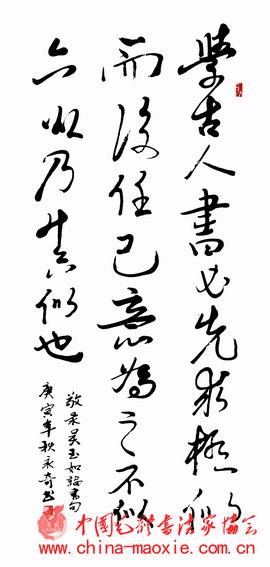 學古人書必先求極似
而後任己意為之不似
亦似乃真似也
敬录吴玉如论书句
庚寅年秋永奇书
中国毛体书法家协会
www.china-maoxie.com.cn